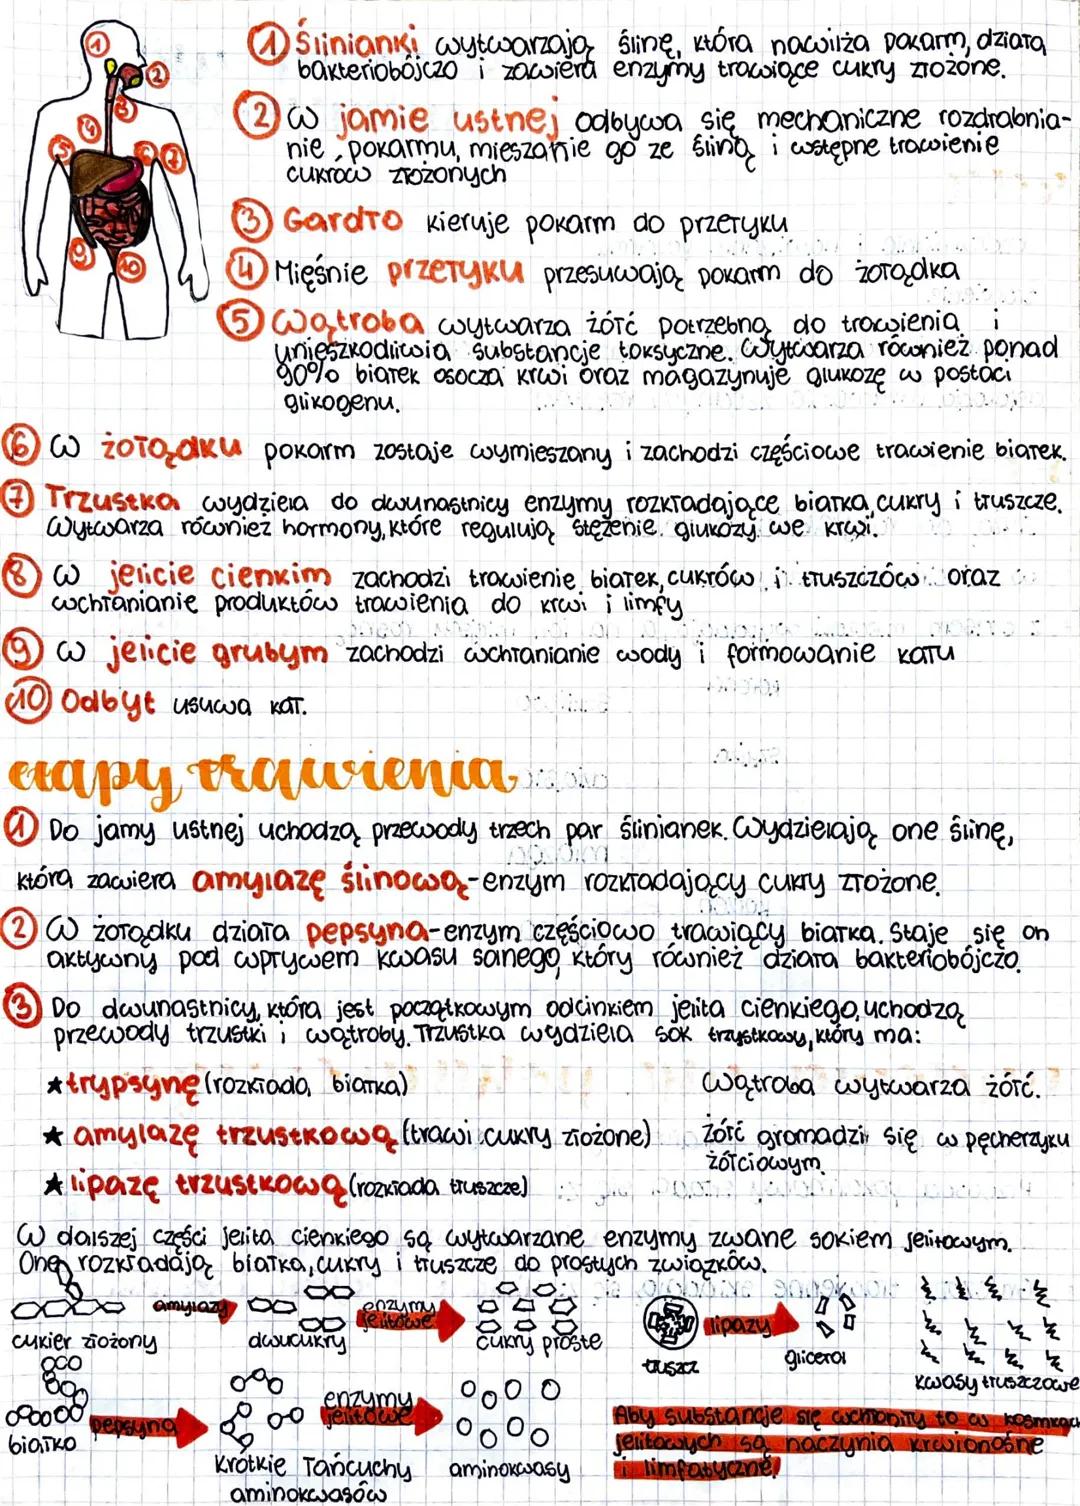 ① Ślinianki wytwarzają ślinę, która nawilża pokarm, działa
bakteriobójczo i zawiera enzymy trawiące cukry złożone.
② W jamie ustnej odbywa się mechaniczne rozdrabnia-
nie pokarmu, mieszanie go ze śliną i wstępne trawienie
cukrów złożonych
③ Gardło kieruje pokarm do przełyku
④ Mięśnie przełyku przesuwają pokarm do żołądka
⑤ Wątroba wytwarza żółć potrzebną do trawienia i
unieszkodliwia substancje toksyczne. Wytwarza również ponad
90% białek osocza krwi oraz magazynuje glukozę w postaci
glikogenu.
⑥ W żołądku pokarm zostaje wymieszany i zachodzi częściowe trawienie białek.
⑦ Trzustka wydziela do dwunastnicy enzymy rozkładające białka, cukry i tłuszcze.
Wytwarza również hormony, które regulują stężenie glukozy we krwi.
⑧ W jelicie cienkim zachodzi trawienie białek, cukrów i tłuszczów oraz
wchłanianie produktów trawienia do krwi i limfy
⑨ W jelicie grubym zachodzi wchłanianie wody i formowanie kału
⑩ Odbyt usuwa kał.
etapy trawienia
① Do jamy ustnej uchodzą przewody trzech par ślinianek. Wydzielają one ślinę,
która zawiera amylazę ślinową - enzym rozkładający cukry złożone.
② W żołądku działa pepsyna - enzym częściowo trawiący białka. Staje się on
aktywny pod wpływem kwasu solnego, który również działa bakteriobójczo.
③ Do dwunastnicy, która jest początkowym odcinkiem jelita cienkiego, uchodzą
przewody trzustki i wątroby. Trzustka wydziela sok trzystkowy, który ma:
★ trypsynę (rozkłada białka)
★ amylazę trzustkową (trawi cukry złożone)
★ lipazę trzustkową (rozkłada tłuszcze)
Wątroba wytwarza żółć.
Żółć gromadzi się w pęcherzyku
żółciowym.
W dalszej części jelita cienkiego są wytwarzane enzymy zwane sokiem jelitowym.
One rozkładają białka, cukry i tłuszcze do prostych związków.
cukier złożony
amylazy
dwucukry
enzymy
jelitowe
cukry proste
tłuszcz
lipazy
glicerol
kwasy tłuszczowe
białko
pepsyna
krótkie łańcuchy
aminokwasów
enzymy
jelitowe
aminokwasy
Aby substancje się wchłoniły to w kosmkach
jelitowych są naczynia krwionośne
i limfatyczne.
① ② ③ ④ ⑤ ⑥ ⑦ ⑨ ⑩